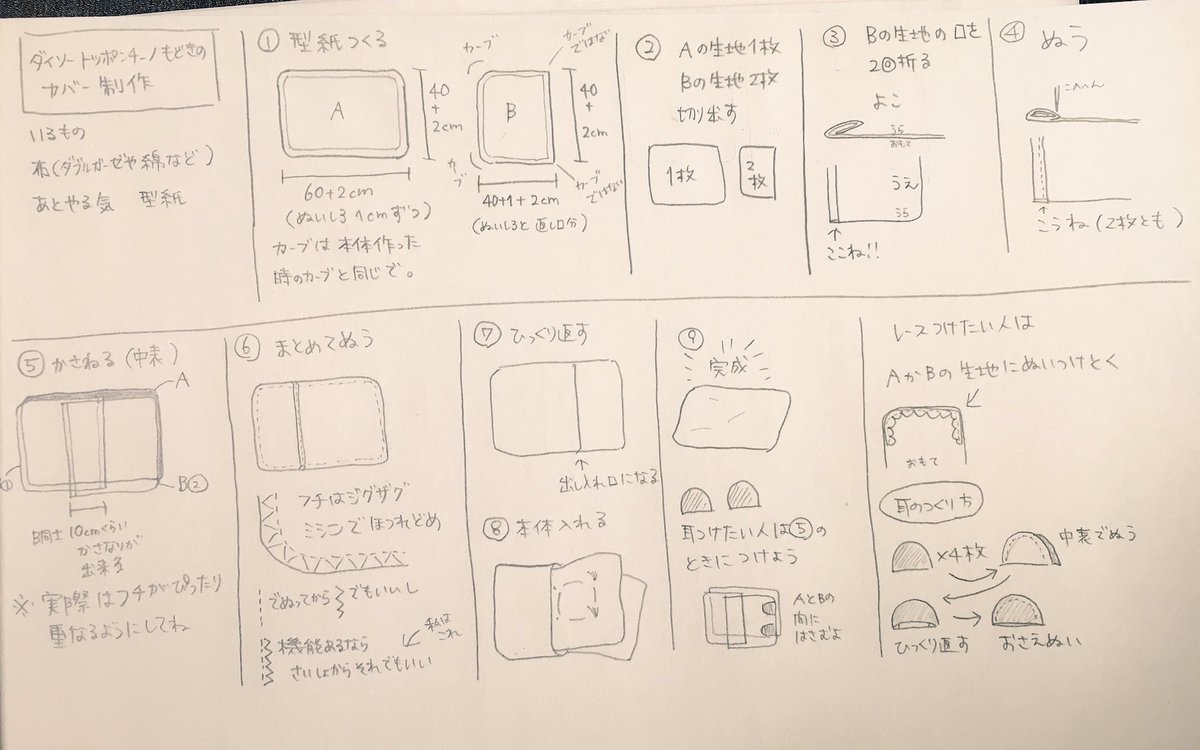 ダイソートッポンチーノもどきの
カバー制作
いるもの
布(ダブルガーゼや綿など)
あとやる気 型紙
① 型紙つくる
A
40
+
2cm
60+2cm
(ぬいしろ1cmずつ)
カーブは本体作った
時のカーブと同じで。
カーブ
カーブ
ではない
B
40
+
2cm
カーブ
カーブ
ではない
40+1+2cm
(ぬいしろと返し口分)
② Aの生地1枚
Bの生地2枚
切り出す
1枚
2枚
③ Bの生地の口を
2回折る
よこ
うら
おもて
うえ
うら
ここね!!
④ ぬう
このへん
こうね(2枚とも)
⑤ かさねる(中表)
A
B①
B②
B同士10cmくらい
かさなりが
出来る
※実際はフチがぴったり
重なるようにしてね
⑥ まとめてぬう
フチはジグザグ
ミシンでほつれどめ
でぬってから でもいいし
機能あるなら
さいしょからそれでもいい
私は
これ
⑦ ひっくり返す
出し入れ口になる
⑧ 本体入れる
⑨
完成
耳つけたい人は⑤の
ときにつけよう
AとBの
間に
はさむよ
レースつけたい人は
AかBの生地にぬいつけとく
おもて
耳のつくり方
×4枚
中表でぬう
ひっくり返す
おさえぬい